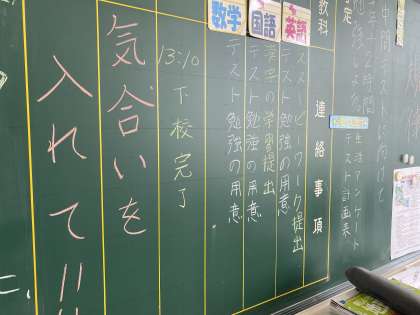 中間テストに向けて
教科
連絡事項
生活アンケート
テスト計画表
英語
スヌーピーワーク提出
テスト勉強の用意
国語
漢字の学習提出
テスト勉強の用意
数学
テスト勉強の用意
13:10 下校完了
気合いを
入れて!!